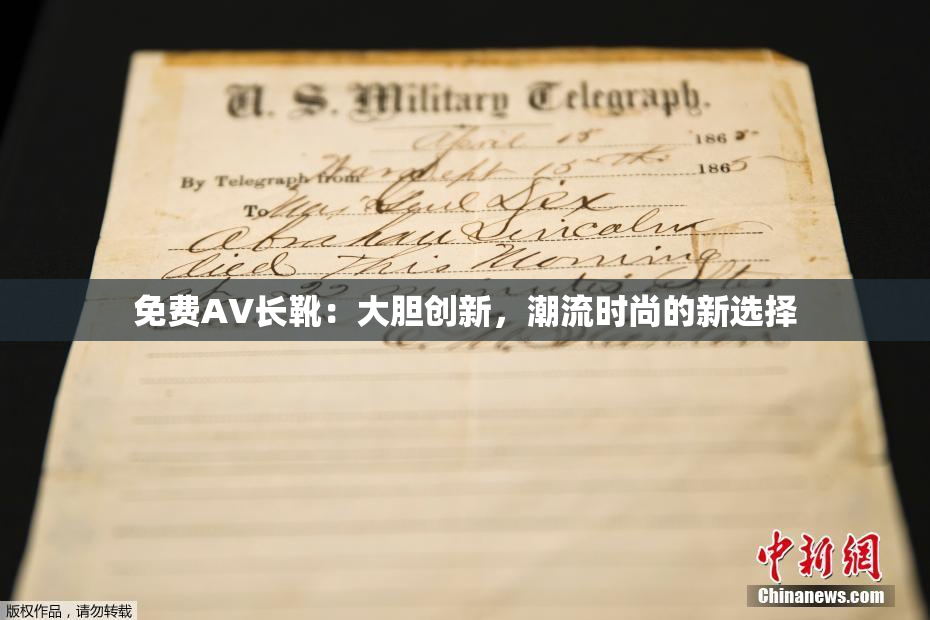 U. S. Military Telegraph.
April 15 1865
By Telegraph from War Dept 15th 1865
To Maj Genl Dix
Abraham Lincoln
died This Morning
22 minutes after
免费AV长靴：大胆创新，潮流时尚的新选择
E. M. Stanton
中新網
Chinanews.com
版权作品，请勿转载